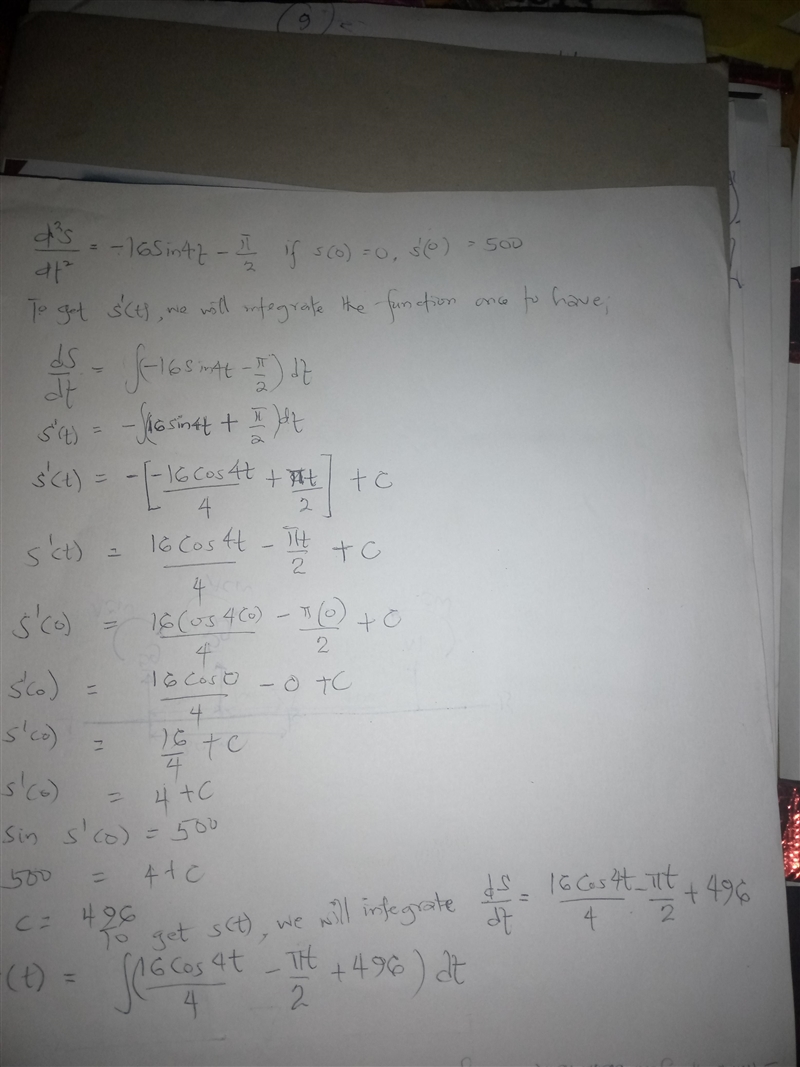 9
d²s/dt² = -16Sin4t - π/2 if s(0) = 0, s'(0) = 500
To get s'(t), we will integrate the function once to have;
ds/dt = ∫(-16sin4t - π/2) dt
s'(t) = -∫(16sin4t + π/2) dt
s'(t) = -[-16cos4t/4 + πt/2] + C
s'(t) = 16Cos4t/4 - πt/2 + C
s'(0) = 16Cos4(0)/4 - π(0)/2 + C
s'(0) = 16Cos0/4 - 0 + C
s'(0) = 16/4 + C
s'(0) = 4 + C
sin s'(0) = 500
500 = 4 + C
C = 496
To get s(t), we will integrate ds/dt = 16Cos4t/4 - πt/2 + 496
(t) = ∫(16Cos4t/4 - πt/2 + 496) dt